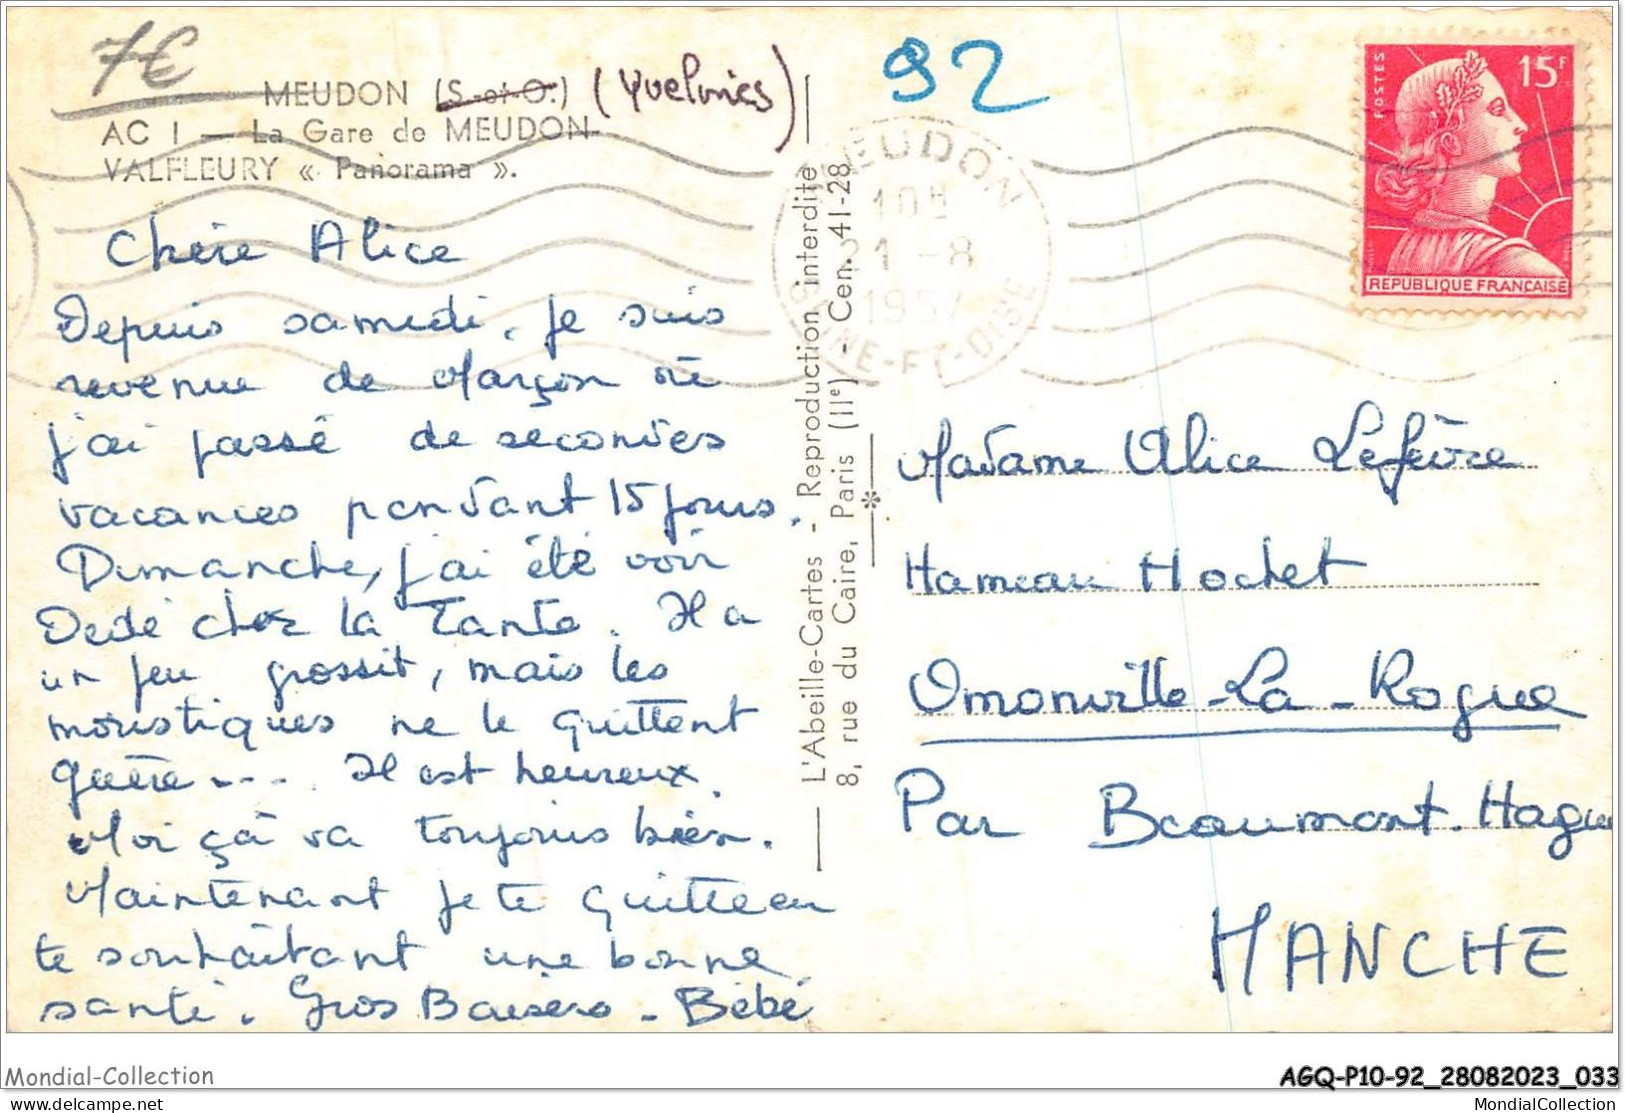 7€
MEUDON (S.-et-O.) (Yvelines)
AC 1 — La Gare de MEUDON-
VALFLEURY « Panorama ».
Chère Alice
Depuis samedi, je suis
revenue de Marçon où
j'ai passé de secondes
vacances pendant 15 jours.
Dimanche, j'ai été voir
Dédé chez la Tante. Il a
un peu grossit, mais les
moustiques ne le quittent
guère... Il est heureux.
Moi çà va toujours bien.
Maintenant je te quitte en
te souhaitant une bonne
santé. Gros Baisers - Bébé
L'Abeille-Cartes - Reproduction interdite
8, rue du Caire, Paris (IIe) - Cen. 41-28
92
MEUDON
10H
21-8
1957
SEINE-ET-OISE
POSTES
15F
REPUBLIQUE FRANÇAISE
Madame Alice Lefèvre
Hameau Hochet
Omonville-La-Rogue
Par Beaumont-Hague
MANCHE
Mondial-Collection
AGQ-P10-92_28082023_033
delcampe.net
MondialCollection